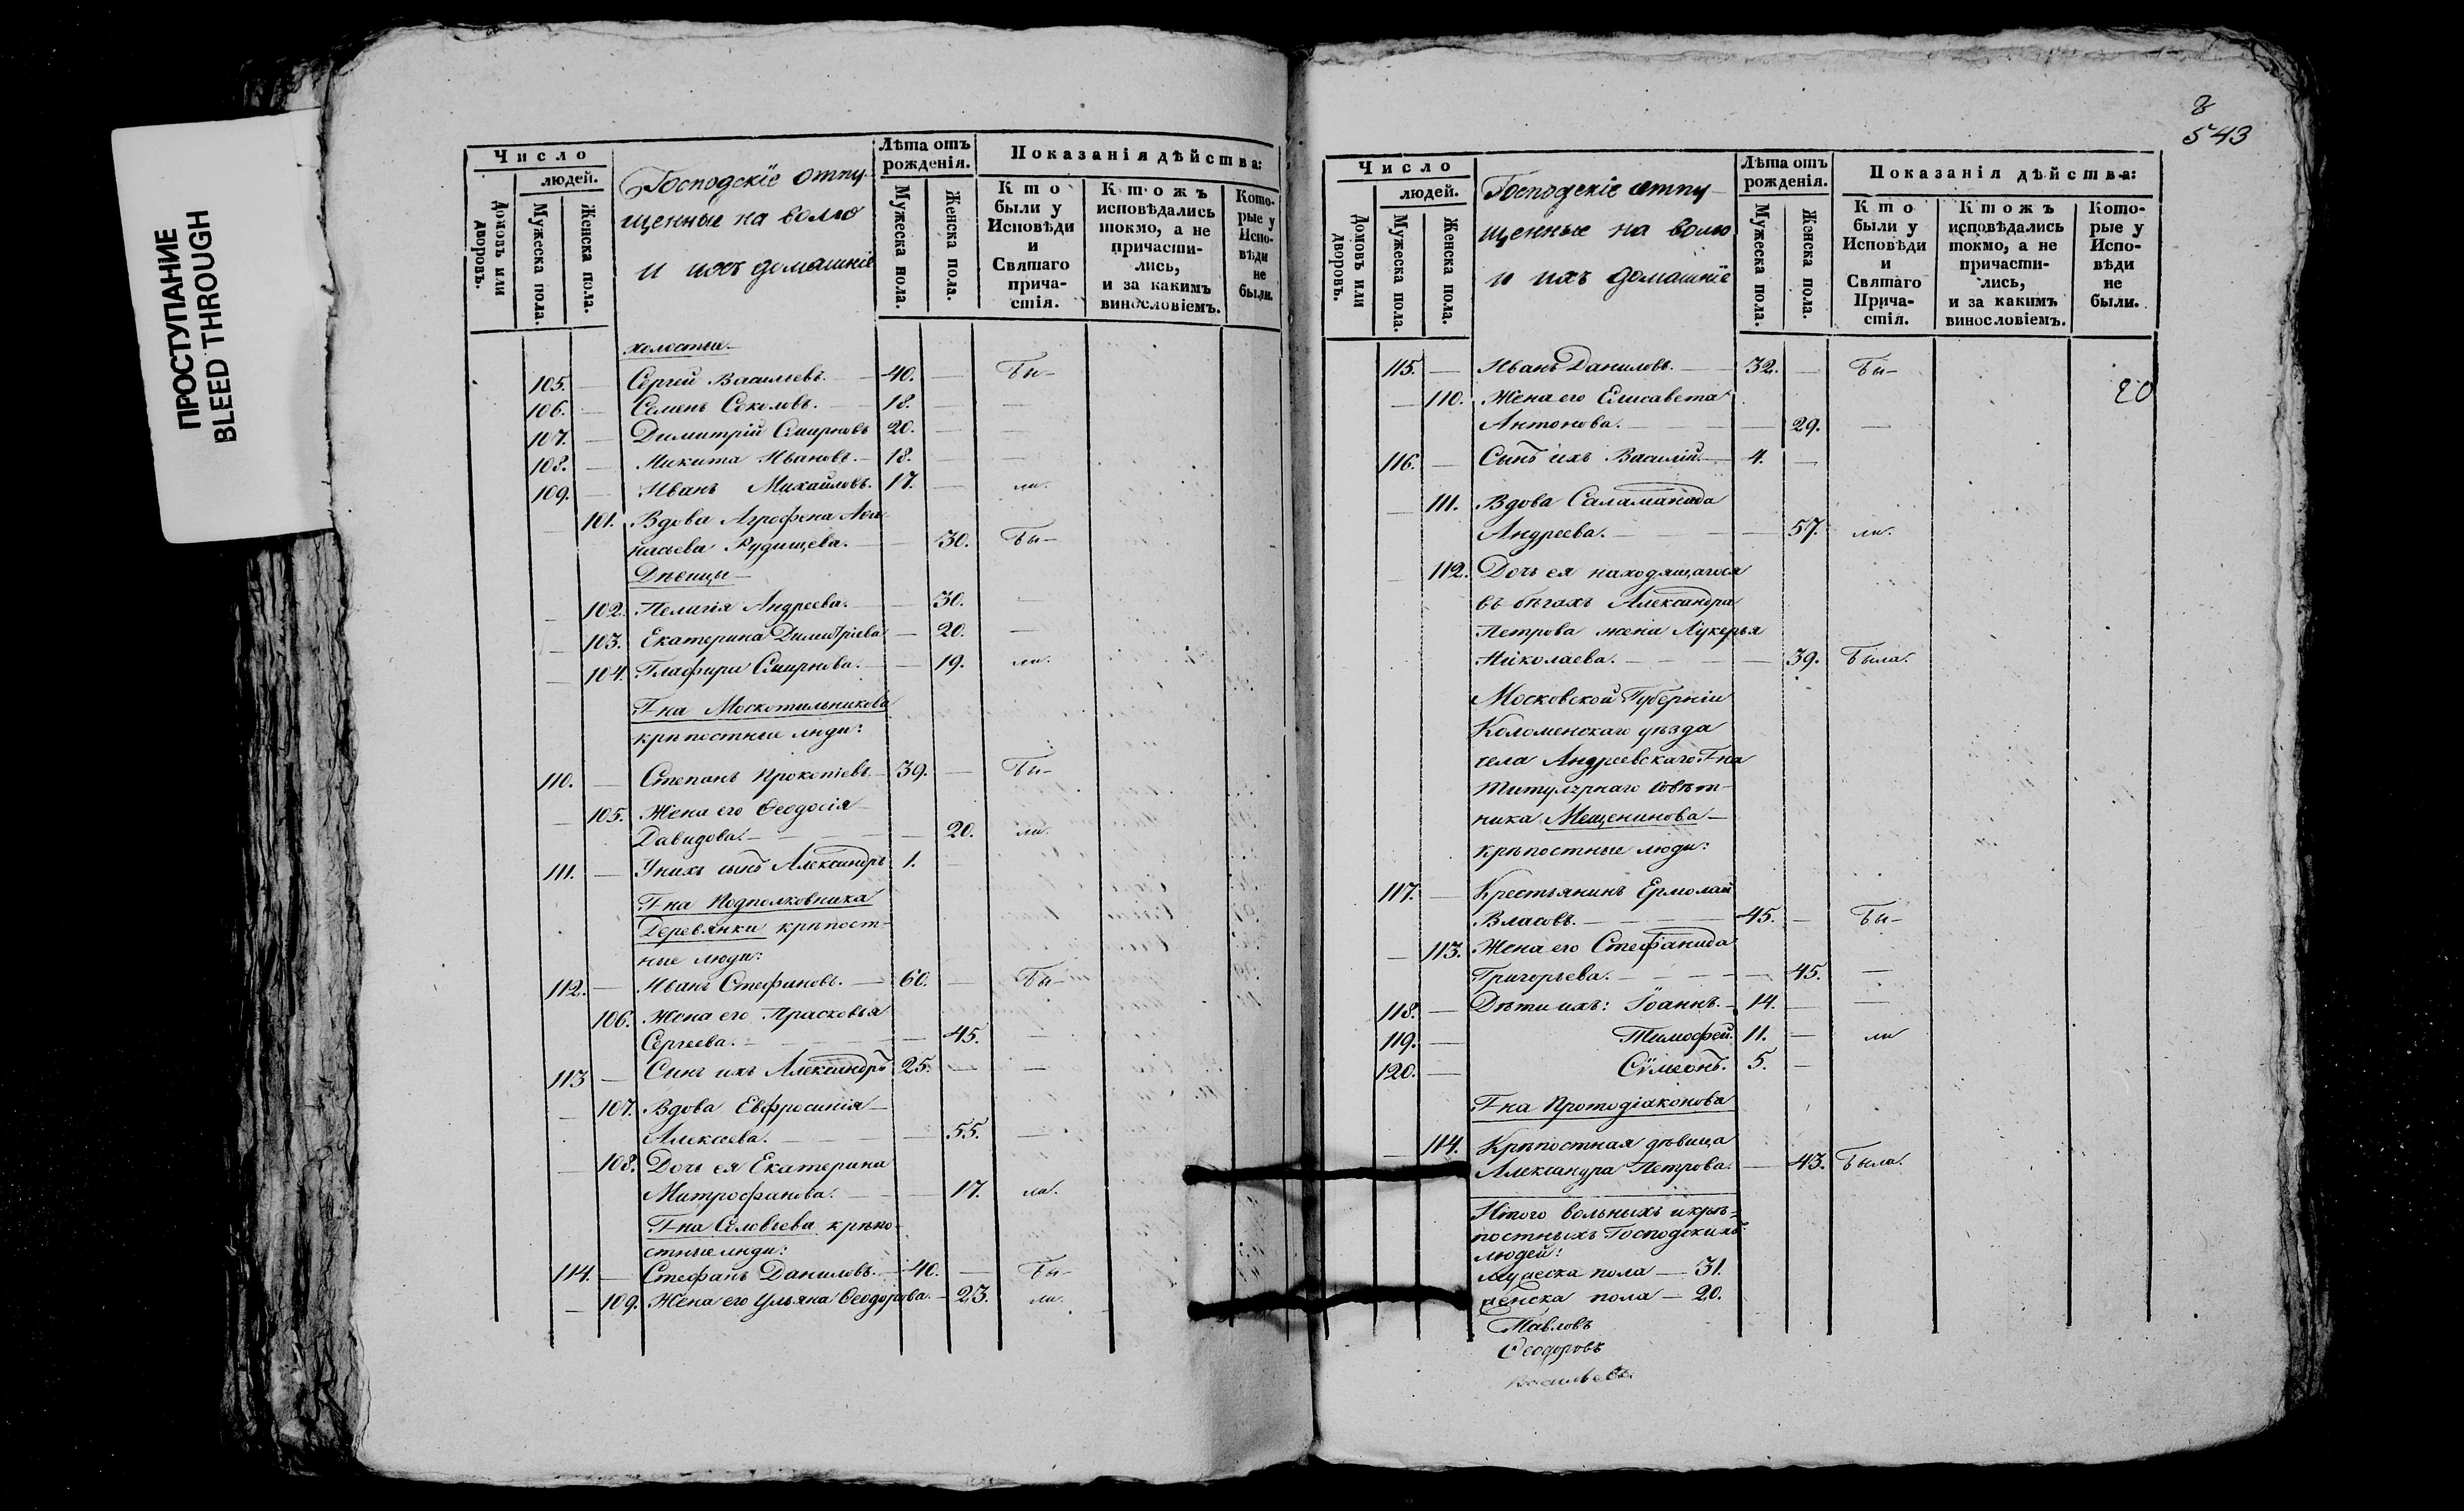 ПРОСТУПАНИЕ
BLEED THROUGH
Число
людей.
Домовъ или дворовъ.
Мужеска пола.
Женска пола.
Господскіе отпу-
щенные на волю
и ихъ домашніе
Лѣта отъ рожденія.
Мужеска пола.
Женска пола.
Показанія дѣйства:
Кто были у Исповѣди и Святаго прича-стія.
Ктожъ исповѣдались токмо, а не причасти-лись, и за какимъ винословіемъ.
Кото-рые у Испо-вѣди не были.
холостые
105. — Сергей Васильевъ. — 40. — Бы-
106. — Семенъ Соколовъ. — 18. — —
107. — Димитрій Смирновъ 20. — —
108. — Микита Ивановъ. — 18. — —
109. — Иванъ Михайловъ. 17. — ли.
— 101. Вдова Агрофена Афа-
насьева Рудищева. — — 30. Бы-
Дѣвицы —
— 102. Пелагія Андреева. — — 30. —
— 103. Екатерина Димитріева — 20. —
— 104. Глафира Смирнова. — — 19. ли.
Г-на Москотильникова
крѣпостные люди:
110. — Степанъ Прокопіевъ. — 39. — Бы-
— 105. Жена его Ѳеодосія
Давидова. — — 20. ли.
111. — У нихъ сынъ Александръ 1. —
Г-на Подполковника
Деревянки крѣпост-
ные люди:
112. — Иванъ Стефановъ. — 60. — Бы-
106. Жена его Прасковья
Сергеева. — — 45. —
113 — Сынъ ихъ Александръ 25. — —
— 107. Вдова Евфросинія —
Алексеева. — — 55. —
— 108. Дочь ея Екатерина
Митрофанова. — — 17. ла.
Г-на Соловьева крѣпо-
стные люди:
114. — Стефанъ Даниловъ. — 40. — Бы-
— 109. Жена его Ульяна Ѳеодорова. — 23. ли.
8
543
Число
людей.
Домовъ или дворовъ.
Мужеска пола.
Женска пола.
Господскіе отпу-
щенные на волю
и ихъ домашніе
Лѣта отъ рожденія.
Мужеска пола.
Женска пола.
Показанія дѣйства:
Кто были у Исповѣди и Святаго Прича-стія.
Ктожъ исповѣдались токмо, а не причасти-лись, и за какимъ винословіемъ.
Кото-рые у Испо-вѣди не были.
115. — Иванъ Даниловъ. — 32. — Бы-
20
— 110. Жена его Елисавета
Антонова. — — 29. —
116. — Сынъ ихъ Василій. — 4. —
— 111. Вдова Саламанида
Андреева. — — 57. ли.
— 112. Дочь ея находящагося
въ бѣгахъ Александра
Петрова жена Лукерья
Николаева. — — 39. Была.
Московской Губерніи
Коломенскаго уѣзда
села Андреевскаго Г-на
Титулярнаго Совѣт-
ника Мещенинова —
крѣпостные люди:
117. — Крестьянинъ Ермолай
Власовъ. — 45. — Бы-
— 113. Жена его Стефанида
Григорьева. — — 45. —
118. — Дѣти ихъ: Іоаннъ. — 14. — —
119. — Тимофей. 11. — ли
120. — Сѵмеонъ. 5. —
Г-на Протодіаконова
— 114. Крѣпостная дѣвица
Александра Петрова. — 43. Была.
Итого вольныхъ и крѣ-
постныхъ Господскихъ
людей:
мужеска пола — 31.
женска пола — 20.
Павловъ
Ѳеодоровъ
Васильевъ